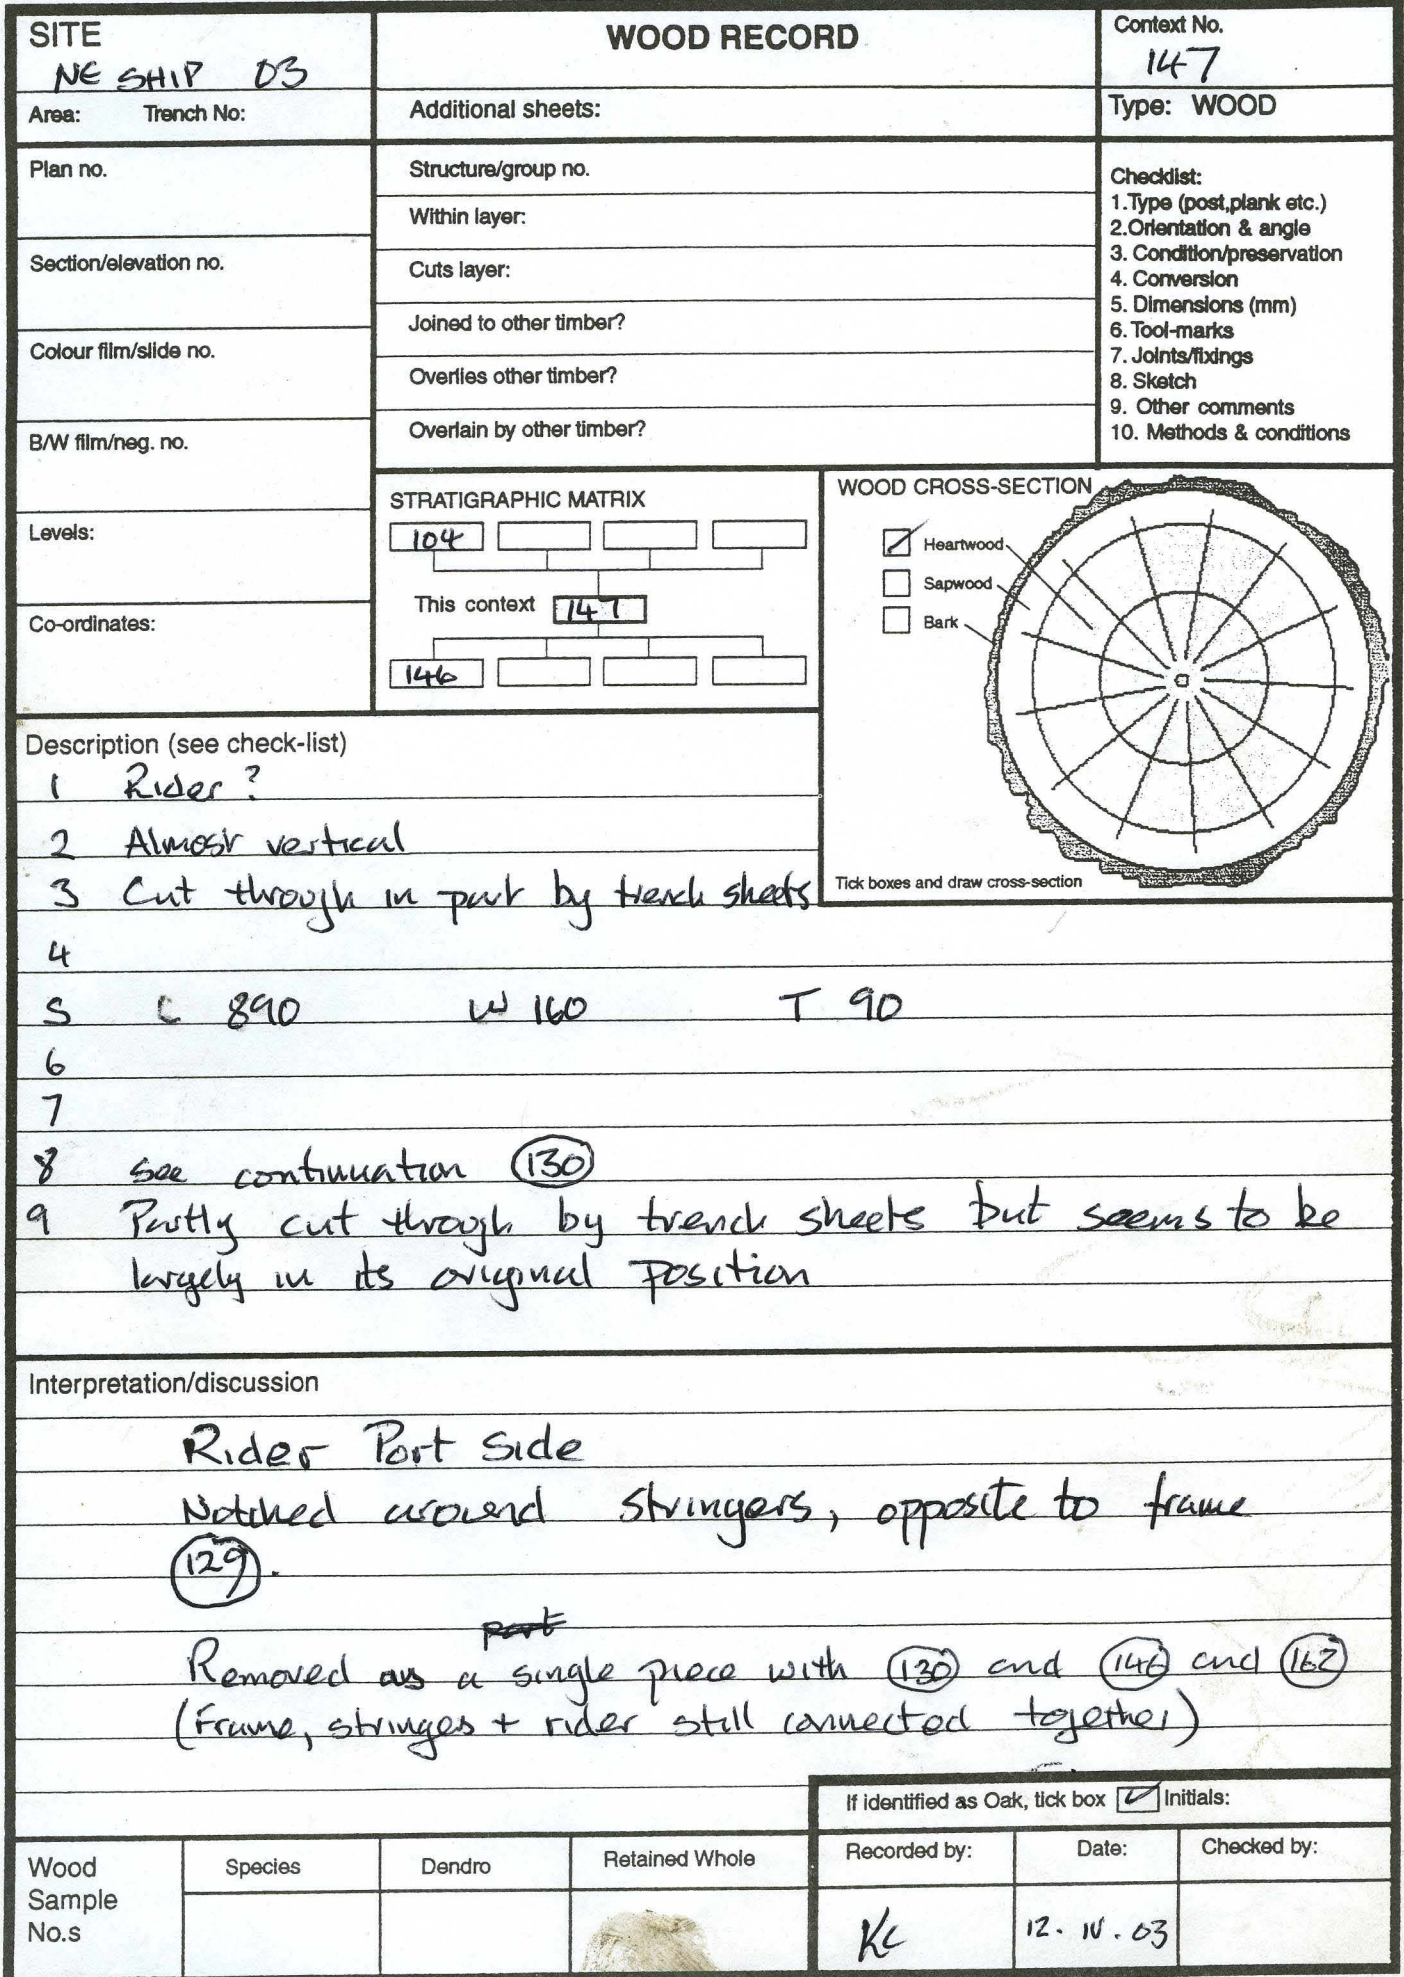 SITE
NE SHIP 03
WOOD RECORD
Context No.
147
Area: Trench No:
Additional sheets:
Type: WOOD
Plan no.
Structure/group no.
Within layer:
Section/elevation no.
Cuts layer:
Joined to other timber?
Colour film/slide no.
Overlies other timber?
B/W film/neg. no.
Overlain by other timber?
Checklist:
1.Type (post,plank etc.)
2.Orientation & angle
3. Condition/preservation
4. Conversion
5. Dimensions (mm)
6. Tool-marks
7. Joints/fixings
8. Sketch
9. Other comments
10. Methods & conditions
Levels:
Co-ordinates:
STRATIGRAPHIC MATRIX
104
This context 147
146
WOOD CROSS-SECTION
Heartwood
Sapwood
Bark
Tick boxes and draw cross-section
Description (see check-list)
1 Rider?
2 Almost vertical
3 Cut through in part by trench sheets
4
5 L 890 W 160 T 90
6
7
8 see continuation 130
9 Partly cut through by trench sheets but seems to be
largely in its original position
Interpretation/discussion
Rider Port Side
Notched around stringers, opposite to frame
129.
port
Removed as a single piece with 130 and 146 and 162
(Frame, stringes + rider still connected together)
If identified as Oak, tick box Initials:
Wood
Sample
No.s
Species
Dendro
Retained Whole
Recorded by:
KC
Date:
12. IV. 03
Checked by: